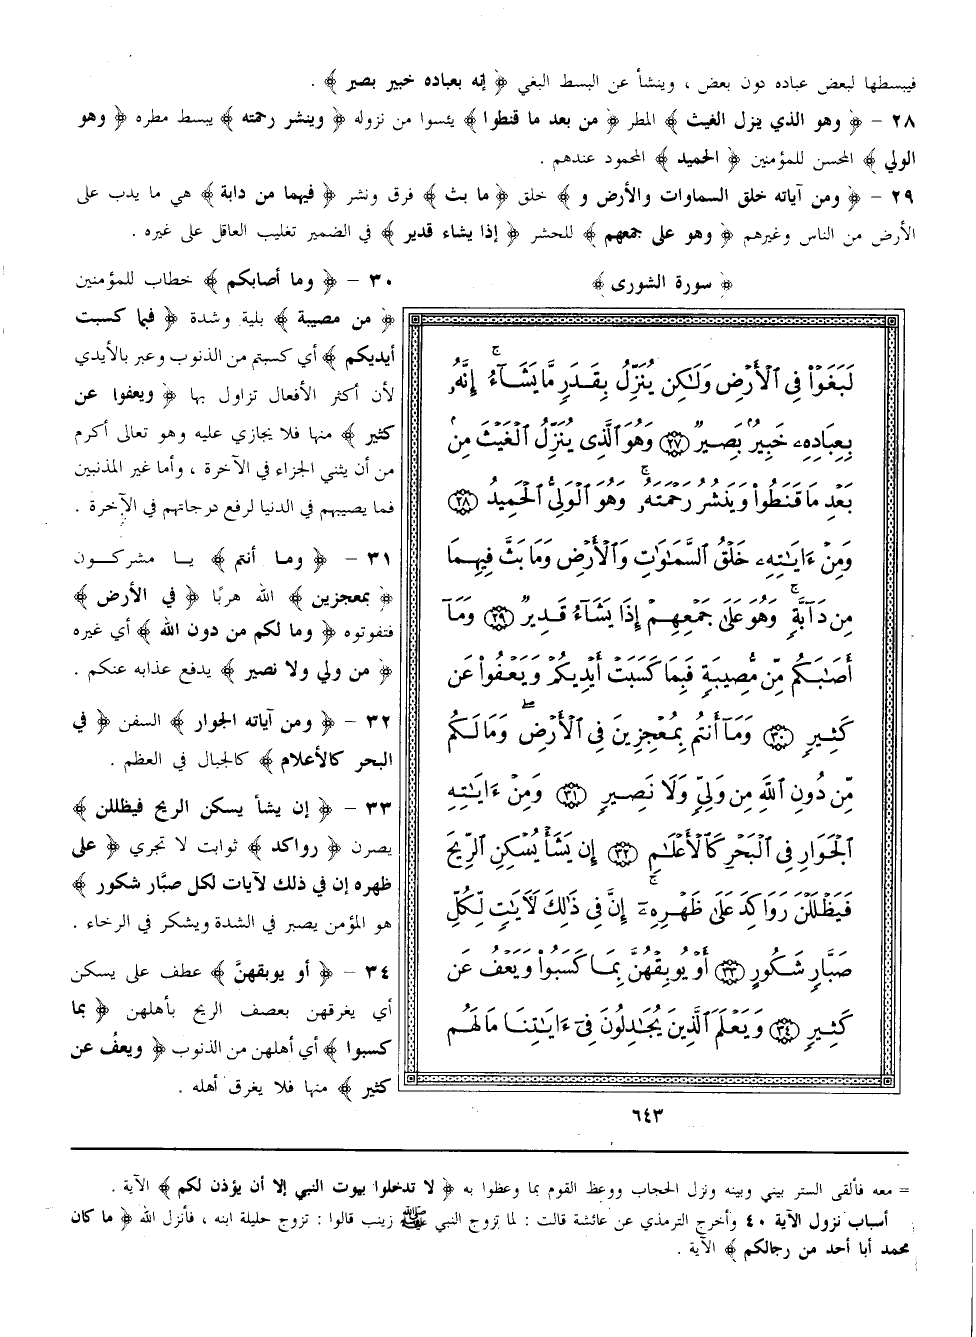 فيبسطها لبعض عباده دون بعض ، وينشأ عن البسط البغي ﴿ إنه بعباده خبير بصير ﴾ .
٢٨ - ﴿ وهو الذي ينزل الغيث ﴾ المطر ﴿ من بعد ما قنطوا ﴾ يئسوا من نزوله ﴿ وينشر رحمته ﴾ يبسط مطره ﴿ وهو
الولي ﴾ المحسن للمؤمنين ﴿ الحميد ﴾ المحمود عندهم .
٢٩ - ﴿ ومن آياته خلق السماوات والأرض و ﴾ خلق ﴿ ما بث ﴾ فرق ونشر ﴿ فيهما من دابة ﴾ هي ما يدب على
الأرض من الناس وغيرهم ﴿ وهو على جمعهم ﴾ للحشر ﴿ إذا يشاء قدير ﴾ في الضمير تغليب العاقل على غيره .
﴿ سورة الشورى ﴾
لَبَغَوْا۟ فِى ٱلْأَرْضِ وَلَـٰكِن يُنَزِّلُ بِقَدَرٍ مَّا يَشَآءُ ۚ إِنَّهُۥ
بِعِبَادِهِۦ خَبِيرٌۢ بَصِيرٌ ﴿٢٧﴾ وَهُوَ ٱلَّذِى يُنَزِّلُ ٱلْغَيْثَ مِنۢ
بَعْدِ مَا قَنَطُوا۟ وَيَنشُرُ رَحْمَتَهُۥ ۚ وَهُوَ ٱلْوَلِىُّ ٱلْحَمِيدُ ﴿٢٨﴾
وَمِنْ ءَايَـٰتِهِۦ خَلْقُ ٱلسَّمَـٰوَٰتِ وَٱلْأَرْضِ وَمَا بَثَّ فِيهِمَا
مِن دَآبَّةٍ ۚ وَهُوَ عَلَىٰ جَمْعِهِمْ إِذَا يَشَآءُ قَدِيرٌ ﴿٢٩﴾ وَمَآ
أَصَـٰبَكُم مِّن مُّصِيبَةٍ فَبِمَا كَسَبَتْ أَيْدِيكُمْ وَيَعْفُوا۟ عَن
كَثِيرٍ ﴿٣٠﴾ وَمَآ أَنتُم بِمُعْجِزِينَ فِى ٱلْأَرْضِ ۖ وَمَا لَكُم
مِّن دُونِ ٱللَّهِ مِن وَلِىٍّ وَلَا نَصِيرٍ ﴿٣١﴾ وَمِنْ ءَايَـٰتِهِ
ٱلْجَوَارِ فِى ٱلْبَحْرِ كَٱلْأَعْلَـٰمِ ﴿٣٢﴾ إِن يَشَأْ يُسْكِنِ ٱلرِّيحَ
فَيَظْلَلْنَ رَوَاكِدَ عَلَىٰ ظَهْرِهِۦٓ ۚ إِنَّ فِى ذَٰلِكَ لَـَٔايَـٰتٍ لِّكُلِّ
صَبَّارٍ شَكُورٍ ﴿٣٣﴾ أَوْ يُوبِقْهُنَّ بِمَا كَسَبُوا۟ وَيَعْفُ عَن
كَثِيرٍ ﴿٣٤﴾ وَيَعْلَمَ ٱلَّذِينَ يُجَـٰدِلُونَ فِىٓ ءَايَـٰتِنَا مَا لَهُم
٣٠ - ﴿ وما أصابكم ﴾ خطاب للمؤمنين
﴿ من مصيبة ﴾ بلية وشدة ﴿ فبما كسبت
أيديكم ﴾ أي كسبتم من الذنوب وعبر بالأيدي
لأن أكثر الأفعال تزاول بها ﴿ ويعفوا عن
كثير ﴾ منها فلا يجازي عليه وهو تعالى أكرم
من أن يثني الجزاء في الآخرة ، وأما غير المذنبين
فما يصيبهم في الدنيا لرفع درجاتهم في الآخرة .
٣١ - ﴿ وما أنتم ﴾ يا مشركون
﴿ بمعجزين ﴾ الله هربًا ﴿ في الأرض ﴾
فتفوتوه ﴿ وما لكم من دون الله ﴾ أي غيره
﴿ من ولي ولا نصير ﴾ يدفع عذابه عنكم .
٣٢ - ﴿ ومن آياته الجوار ﴾ السفن ﴿ في
البحر كالأعلام ﴾ كالجبال في العظم .
٣٣ - ﴿ إن يشأ يسكن الريح فيظللن ﴾
يصرن ﴿ رواكد ﴾ ثوابت لا تجري ﴿ على
ظهره إن في ذلك لآيات لكل صبَّار شكور ﴾
هو المؤمن يصبر في الشدة ويشكر في الرخاء .
٣٤ - ﴿ أو يوبقهنَّ ﴾ عطف على يسكن
أي يغرقهن بعصف الريح بأهلهن ﴿ بما
كسبوا ﴾ أي أهلهن من الذنوب ﴿ ويعفُ عن
كثير ﴾ منها فلا يغرق أهله .
٦٤٣
= معه فألقى الستر بيني وبينه ونزل الحجاب ووعظ القوم بما وعظوا به ﴿ لا تدخلوا بيوت النبي إلا أن يؤذن لكم ﴾ الآية .
أسباب نزول الآية ٤٠ وأخرج الترمذي عن عائشة قالت : لما تزوج النبي ﷺ زينب قالوا : تزوج حليلة ابنه ، فأنزل الله ﴿ ما كان
محمد أبا أحد من رجالكم ﴾ الآية .